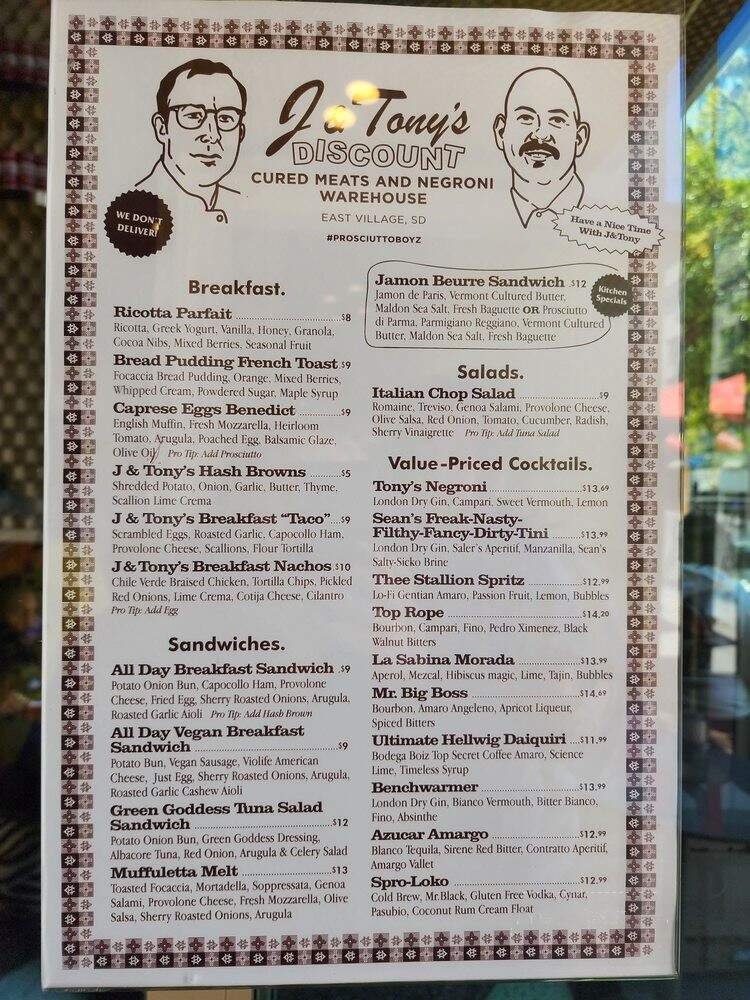 J & Tony's
DISCOUNT
CURED MEATS AND NEGRONI
WAREHOUSE
EAST VILLAGE, SD
#PROSCIUTTOBOYZ
WE DON'T
DELIVER!
Have a Nice Time
With J&Tony
Breakfast.
Ricotta Parfait $8
Ricotta, Greek Yogurt, Vanilla, Honey, Granola,
Cocoa Nibs, Mixed Berries, Seasonal Fruit
Bread Pudding French Toast $9
Focaccia Bread Pudding, Orange, Mixed Berries,
Whipped Cream, Powdered Sugar, Maple Syrup
Caprese Eggs Benedict $9
English Muffin, Fresh Mozzarella, Heirloom
Tomato, Arugula, Poached Egg, Balsamic Glaze,
Olive Oil Pro Tip: Add Prosciutto
J & Tony's Hash Browns $5
Shredded Potato, Onion, Garlic, Butter, Thyme,
Scallion Lime Crema
J & Tony's Breakfast "Taco" $9
Scrambled Eggs, Roasted Garlic, Capocollo Ham,
Provolone Cheese, Scallions, Flour Tortilla
J & Tony's Breakfast Nachos $10
Chile Verde Braised Chicken, Tortilla Chips, Pickled
Red Onions, Lime Crema, Cotija Cheese, Cilantro
Pro Tip: Add Egg
Sandwiches.
All Day Breakfast Sandwich $9
Potato Onion Bun, Capocollo Ham, Provolone
Cheese, Fried Egg, Sherry Roasted Onions, Arugula,
Roasted Garlic Aioli Pro Tip: Add Hash Brown
All Day Vegan Breakfast
Sandwich $9
Potato Bun, Vegan Sausage, Violife American
Cheese, Just Egg, Sherry Roasted Onions, Arugula,
Roasted Garlic Cashew Aioli
Green Goddess Tuna Salad
Sandwich $12
Potato Onion Bun, Green Goddess Dressing,
Albacore Tuna, Red Onion, Arugula & Celery Salad
Muffuletta Melt $13
Toasted Focaccia, Mortadella, Soppressata, Genoa
Salami, Provolone Cheese, Fresh Mozzarella, Olive
Salsa, Sherry Roasted Onions, Arugula
Jamon Beurre Sandwich $12
Jamon de Paris, Vermont Cultured Butter,
Maldon Sea Salt, Fresh Baguette OR Prosciutto
di Parma, Parmigiano Reggiano, Vermont Cultured
Butter, Maldon Sea Salt, Fresh Baguette
Kitchen
Specials
Salads.
Italian Chop Salad $9
Romaine, Treviso, Genoa Salami, Provolone Cheese,
Olive Salsa, Red Onion, Tomato, Cucumber, Radish,
Sherry Vinaigrette Pro Tip: Add Tuna Salad
Value-Priced Cocktails.
Tony's Negroni $13.69
London Dry Gin, Campari, Sweet Vermouth, Lemon
Sean's Freak-Nasty-
Filthy-Fancy-Dirty-Tini $13.99
London Dry Gin, Saler's Aperitif, Manzanilla, Sean's
Salty-Sicko Brine
Thee Stallion Spritz $12.99
Lo-Fi Gentian Amaro, Passion Fruit, Lemon, Bubbles
Top Rope $14.20
Bourbon, Campari, Fino, Pedro Ximenez, Black
Walnut Bitters
La Sabina Morada $13.99
Aperol, Mezcal, Hibiscus magic, Lime, Tajin, Bubbles
Mr. Big Boss $14.69
Bourbon, Amaro Angeleno, Apricot Liqueur,
Spiced Bitters
Ultimate Hellwig Daiquiri $11.99
Bodega Boiz Top Secret Coffee Amaro, Science
Lime, Timeless Syrup
Benchwarmer $13.99
London Dry Gin, Bianco Vermouth, Bitter Bianco,
Fino, Absinthe
Azucar Amargo $12.99
Blanco Tequila, Sirene Red Bitter, Contratto Aperitif,
Amargo Vallet
Spro-Loko $12.99
Cold Brew, Mr.Black, Gluten Free Vodka, Cynar,
Pasubio, Coconut Rum Cream Float